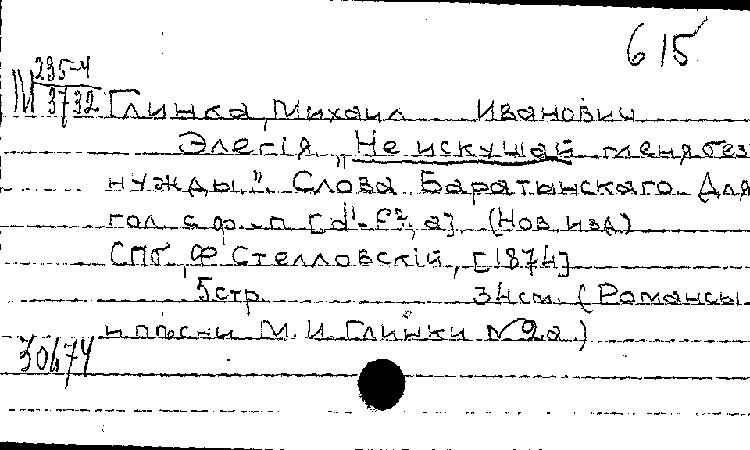 615
М 235-4
3732
Глинка, Михаил Иванович
Элегія „Не искушай меня без
нужды". Слова Баратынскаго. Для
гол. с ф.-п. [d¹-f², a] (Нов. изд)
СПб, Ф. Стелловскій, [1874]
5 стр. 34 см. (Романсы
и пѣсни М. И. Глинки №9а.)
30674